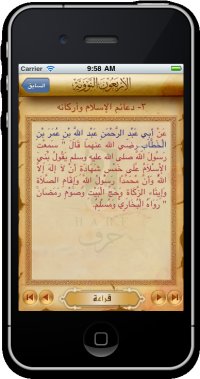 Carrier 9:58 AM
السابق الأربعون النووية
٣- دعائم الإسلام وأركانه
عَنْ أَبِي عَبْدِ الرَّحْمَنِ عَبْدِ اللَّهِ بْنِ عُمَرَ بْنِ
الْخَطَّابِ رَضِيَ اللَّهُ عَنْهُمَا قَالَ " سَمِعْت
رَسُولَ اللَّهِ صلى الله عليه وسلم يَقُولُ بُنِيَ
الْإِسْلَامُ عَلَى خَمْسٍ شَهَادَةِ أَنْ لَا إلَهَ إلَّا
اللَّهُ وَأَنَّ مُحَمَّدًا رَسُولُ اللَّهِ وَإِقَامِ الصَّلَاةِ
وَإِيتَاءِ الزَّكَاةِ وَحَجِّ الْبَيْتِ وَصَوْمِ رَمَضَانَ
" رَوَاهُ الْبُخَارِيُّ وَمُسْلِمٌ.
HARF
حرف
قراءة